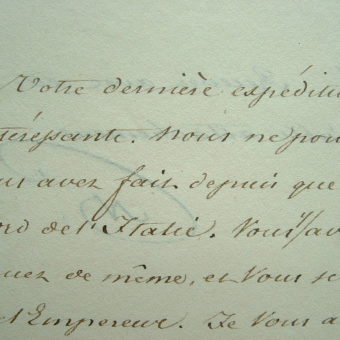 Votre dernière expédition
téressante. Nous ne pou
us avez fait depuis que
ord de l'Italie. Vous av
uez de même, et Vous se
l'Empereur. Je Vous a